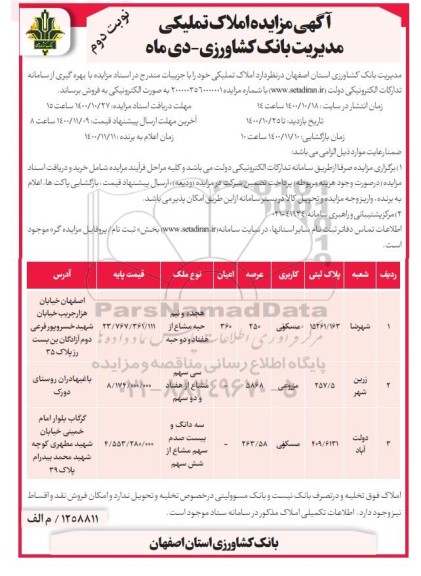 آگهی مزایده املاک تملیکی
مدیریت بانک کشاورزی-دی ماه
نوبت دوم
مدیریت بانک کشاورزی استان اصفهان درنظردارد املاک تملیکی خود را با جزییات مندرج در اسناد مزایده با بهره گیری از سامانه
تدارکات الکترونیکی دولت (www.setadiran.ir) با شماره مزایده به صورت الکترونیکی به فروش برساند.
زمان انتشار در سایت : ۱۴۰۰/۱۰/۱۸ ساعت ۱۴
مهلت دریافت اسناد مزایده: ۱۴۰۰/۱۰/۲۷ ساعت ۱۵
تاریخ بازدید: تا ۱۴۰۰/۱۰/۲۵
آخرین مهلت ارسال پیشنهاد قیمت: ۱۴۰۰/۱۱/۰۹ ساعت ۸
زمان بازگشایی: ۱۴۰۰/۱۱/۱۰ ساعت ۱۰
زمان اعلام به برنده : ۱۴۰۰/۱۱/۱۱
ضمنا رعایت موارد ذیل الزامی می باشد:
۱)برگزاری مزایده صرفا ازطریق سامانه تدارکات الکترونیکی دولت می باشد و کلیه مراحل فرآیند مزایده شامل خرید و دریافت اسناد
مزایده (درصورت وجود هزینه مربوطه)، پرداخت تضمین شرکت در مزایده (ودیعه)، ارسال پیشنهاد قیمت، بازگشایی پاکت ها، اعلام
به برنده، واریز وجه مزایده و تحویل کالا در بستر سامانه ازاین طریق امکان پذیر می باشد.
۲)مرکز پشتیبانی و راهبری سامانه: ۴۱۹۳۴-۰۲۱
اطلاعات تماس دفاتر ثبت نام سایر استانها، در سایت سامانه (www.setadiran.ir) بخش« ثبت نام / پروفایل مزایده گر» موجود
است.
ردیف شعبه پلاک ثبتی کاربری عرصه اعیان نوع ملک قیمت پایه آدرس
۱ شهرضا ۱۵۲۶۱/۱۶۳ مسکونی ۲۵۰ ۳۶۰ هجده و نیم حبه مشاع از هفتاد و دو حبه ۲۳/۷۶۷/۳۶۱/۱۱۱ اصفهان خیابان هزارجریب خیابان شهید خسروپور فرعی دوم آزادگان بن بست رز پلاک ۳۵
۲ زرین شهر ۲۵۷/۵ مزروعی ۵۸۶۸ - سی سهم مشاع از هفتاد و دو سهم ۸/۱۷۴/۰۰۰/۰۰۰ باغبهادران روستای دورک
۳ دولت آباد ۴۰۹/۶۱۳۱ مسکونی ۲۶۳/۵۸ - سه دانگ و بیست صدم سهم مشاع از شش سهم ۴/۵۵۳/۲۸۰/۰۰۰ گرگاب بلوار امام خمینی خیابان شهید مطهری کوچه شهید محمد بیدرام پلاک ۳۹
ParsNamadData
پایگاه اطلاع رسانی مناقصه و مزایده
۰۲۱-۸۸۳۴۹۶۷۰-۵
املاک فوق تخلیه و درتصرف بانک نیست و بانک مسوولیتی درخصوص تخلیه و تحویل ندارد و امکان فروش نقد و اقساط
نیز وجود دارد. اطلاعات تکمیلی املاک مذکور در سامانه ستاد موجود است.
۱۲۵۸۸۱۱ / م الف
بانک کشاورزی استان اصفهان